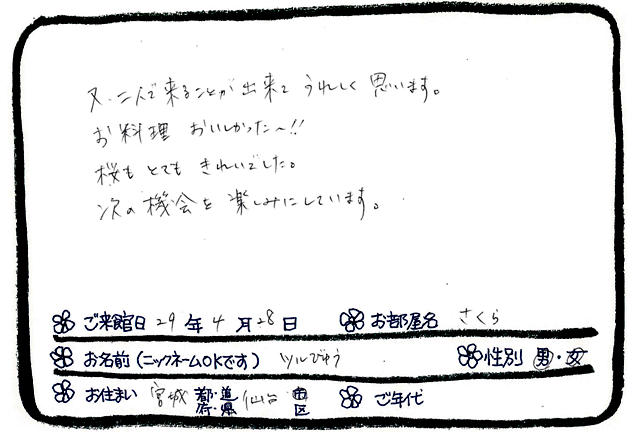 又、二人で来ることが出来て うれしく 思います。
お料理 おいしかった〜!!
桜も とても きれいでした。
次の 機会を 楽しみにしています。
ご来館日 29 年 4 月 28 日 お部屋名 さくら
お名前(ニックネームOKです) ツルびゅう 性別 男・女
お住まい 宮城 都・道 府・県 仙台 市 区 ご年代